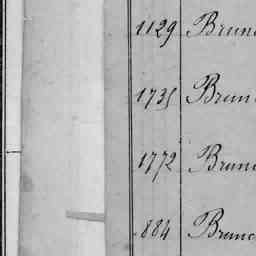 1129 Brun
1735 Brun
1772 Brun
884 Brun